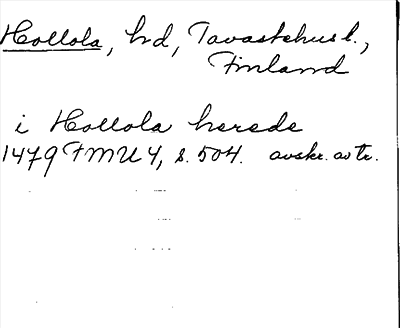 Hollola, hd, Tavastehus l.,
Finland
i Hollola herede
1479 FMU 4, s. 504. avskr. av tr.